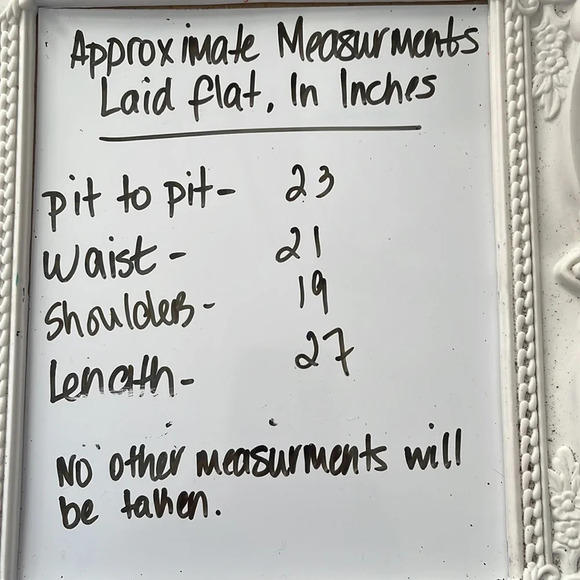 Approximate Measurments
Laid flat, In Inches
pit to pit- 23
waist- 21
shoulders- 19
Length- 27
No other measurments will
be taken.